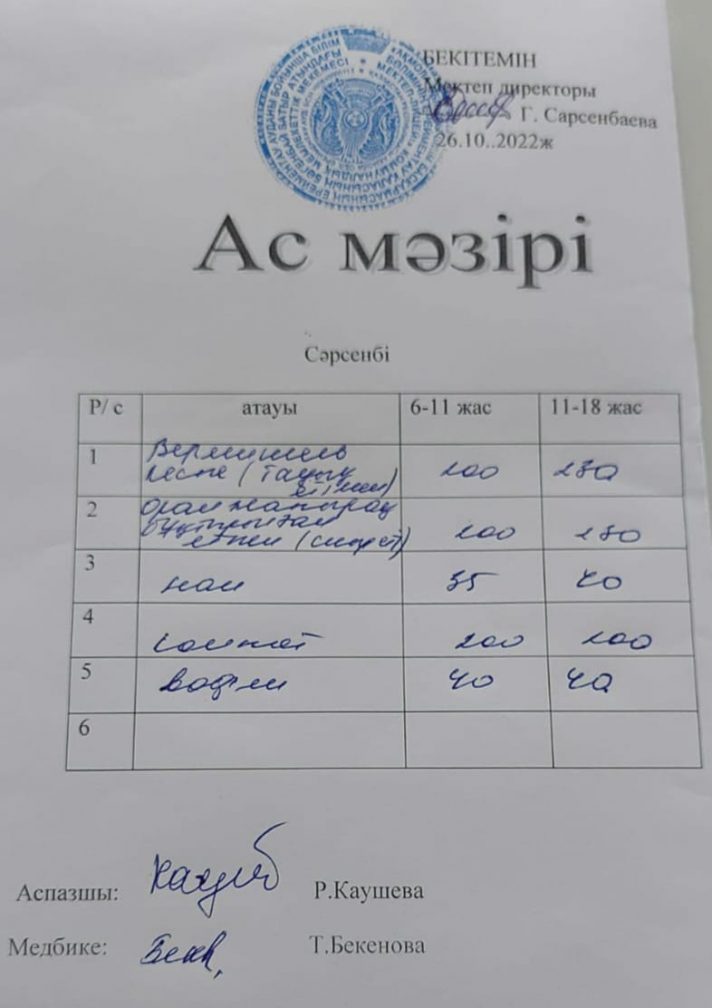 БЕКІТЕМІН
Мектеп директоры
Г. Сарсенбаева
26.10..2022ж
Ас мәзірі
Сәрсенбі
Р/ с атауы 6-11 жас 11-18 жас
1 Вермишель
кеспе (тауық
етімен) 200 250
2 орамжапырақ
бұқтырылған
етпен 200 250
3 нан 35 40
4 компот 200 200
5 вафли 40 40
6
Аспазшы: Р.Каушева
Медбике: Т.Бекенова